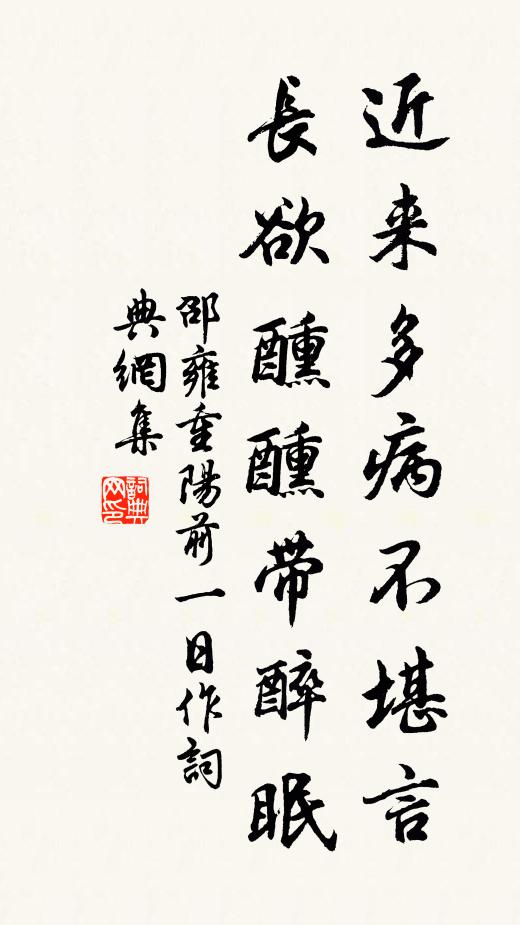 近来多病不堪言
長欲醺醺帶醉眠
邵雍重陽前一日作詞
典網集
詞典網印